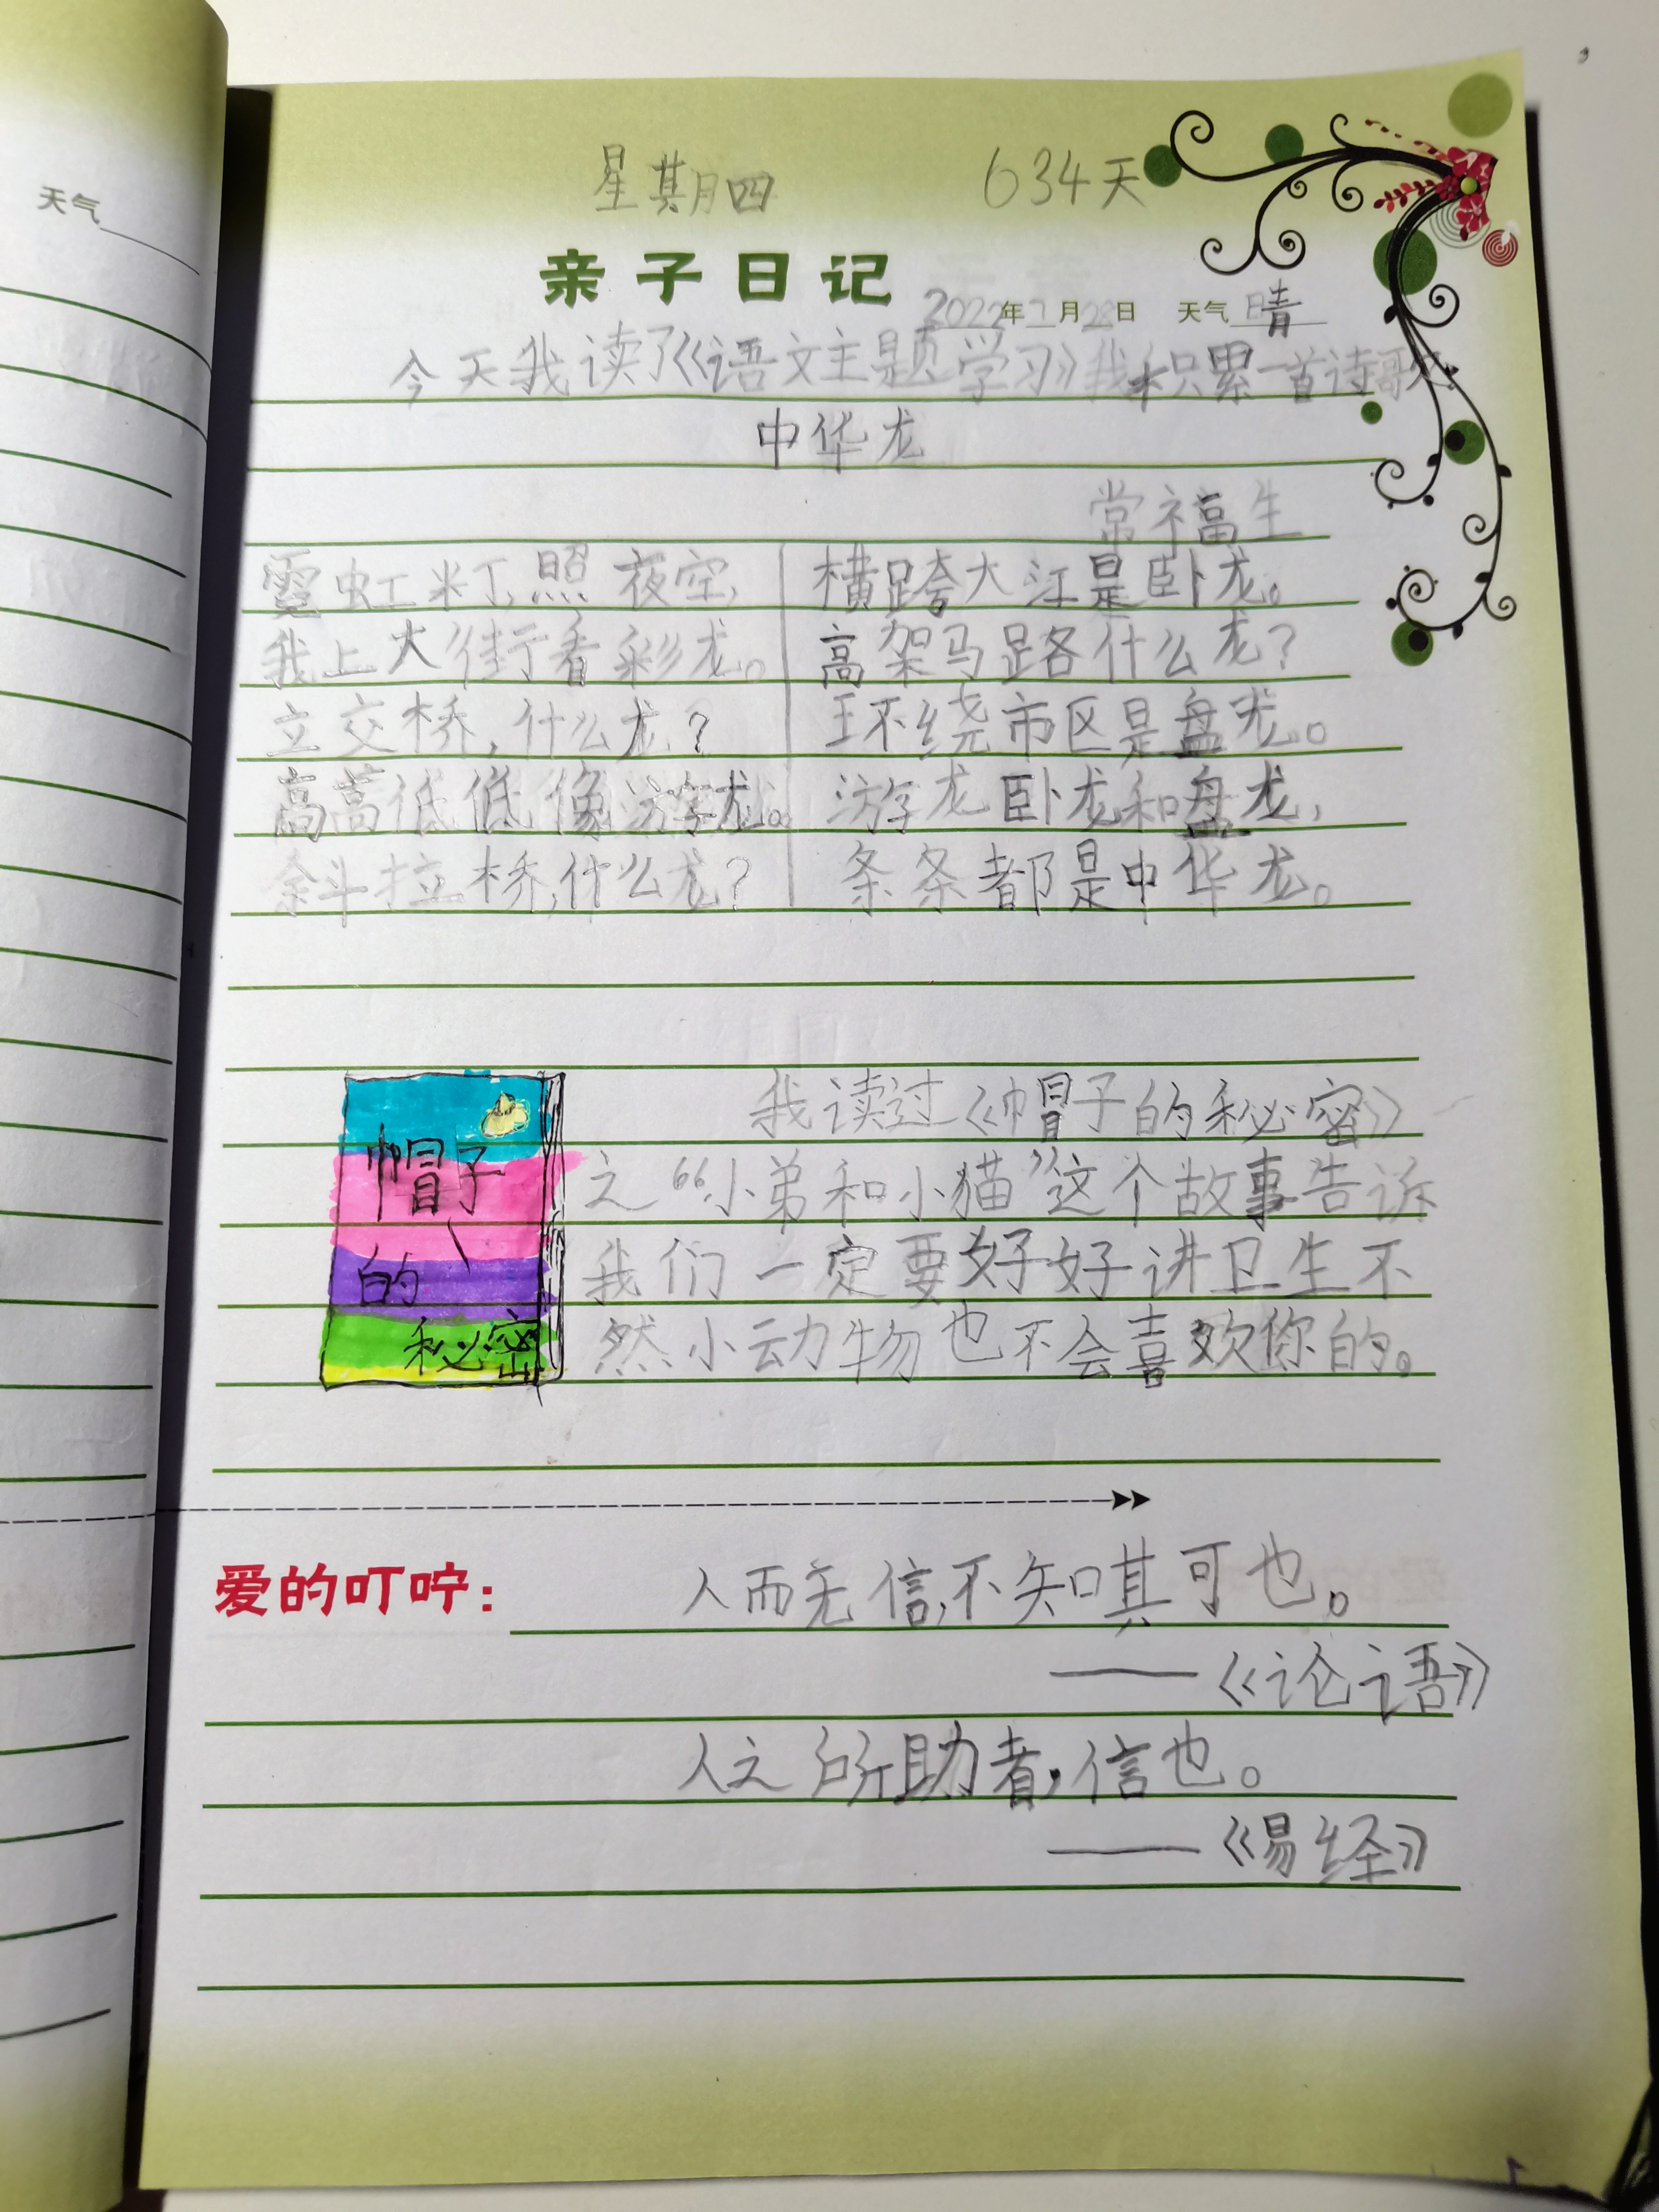 天气
星期四 634天
亲子日记
2022年7月28日 天气 晴
今天我读了《语文主题学习》我积累一首诗歌
中华龙
常福生
霓虹灯,照夜空,
我上大街看彩龙。
立交桥,什么龙?
高高低低像游龙。
斜拉桥,什么龙?
横跨大江是卧龙。
高架马路什么龙?
环绕市区是盘龙。
游龙卧龙和盘龙,
条条都是中华龙。
帽子
的
秘密
我读过《帽子的秘密》
之“小弟和小猫”这个故事告诉
我们一定要好好讲卫生不
然小动物也不会喜欢你的。
爱的叮咛: 人而无信,不知其可也。
——《论语》
人之所助者,信也。
——《易经》